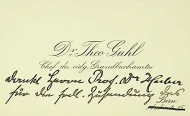 Dr Theo Guhl
Chef des eidg. Grundbuchamtes
dankt Herrn Prof. Dr Huber
für die frdl. Zusendung des
Bern